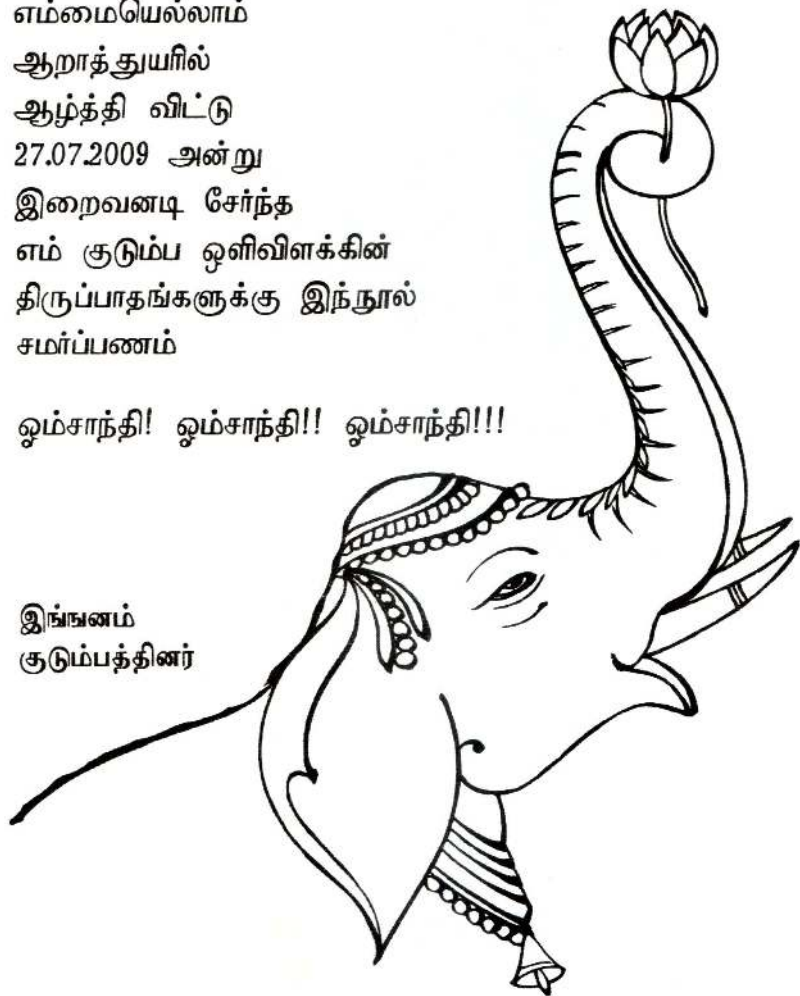 எம்மையெல்லாம்
ஆறாத்துயரில்
ஆழ்த்தி விட்டு
27.07.2009 அன்று
இறைவனடி சேர்ந்த
எம் குடும்ப ஒளிவிளக்கின்
திருப்பாதங்களுக்கு இந்நூல்
சமர்ப்பணம்
ஓம்சாந்தி! ஓம்சாந்தி!! ஓம்சாந்தி!!!
இங்ஙனம்
குடும்பத்தினர்